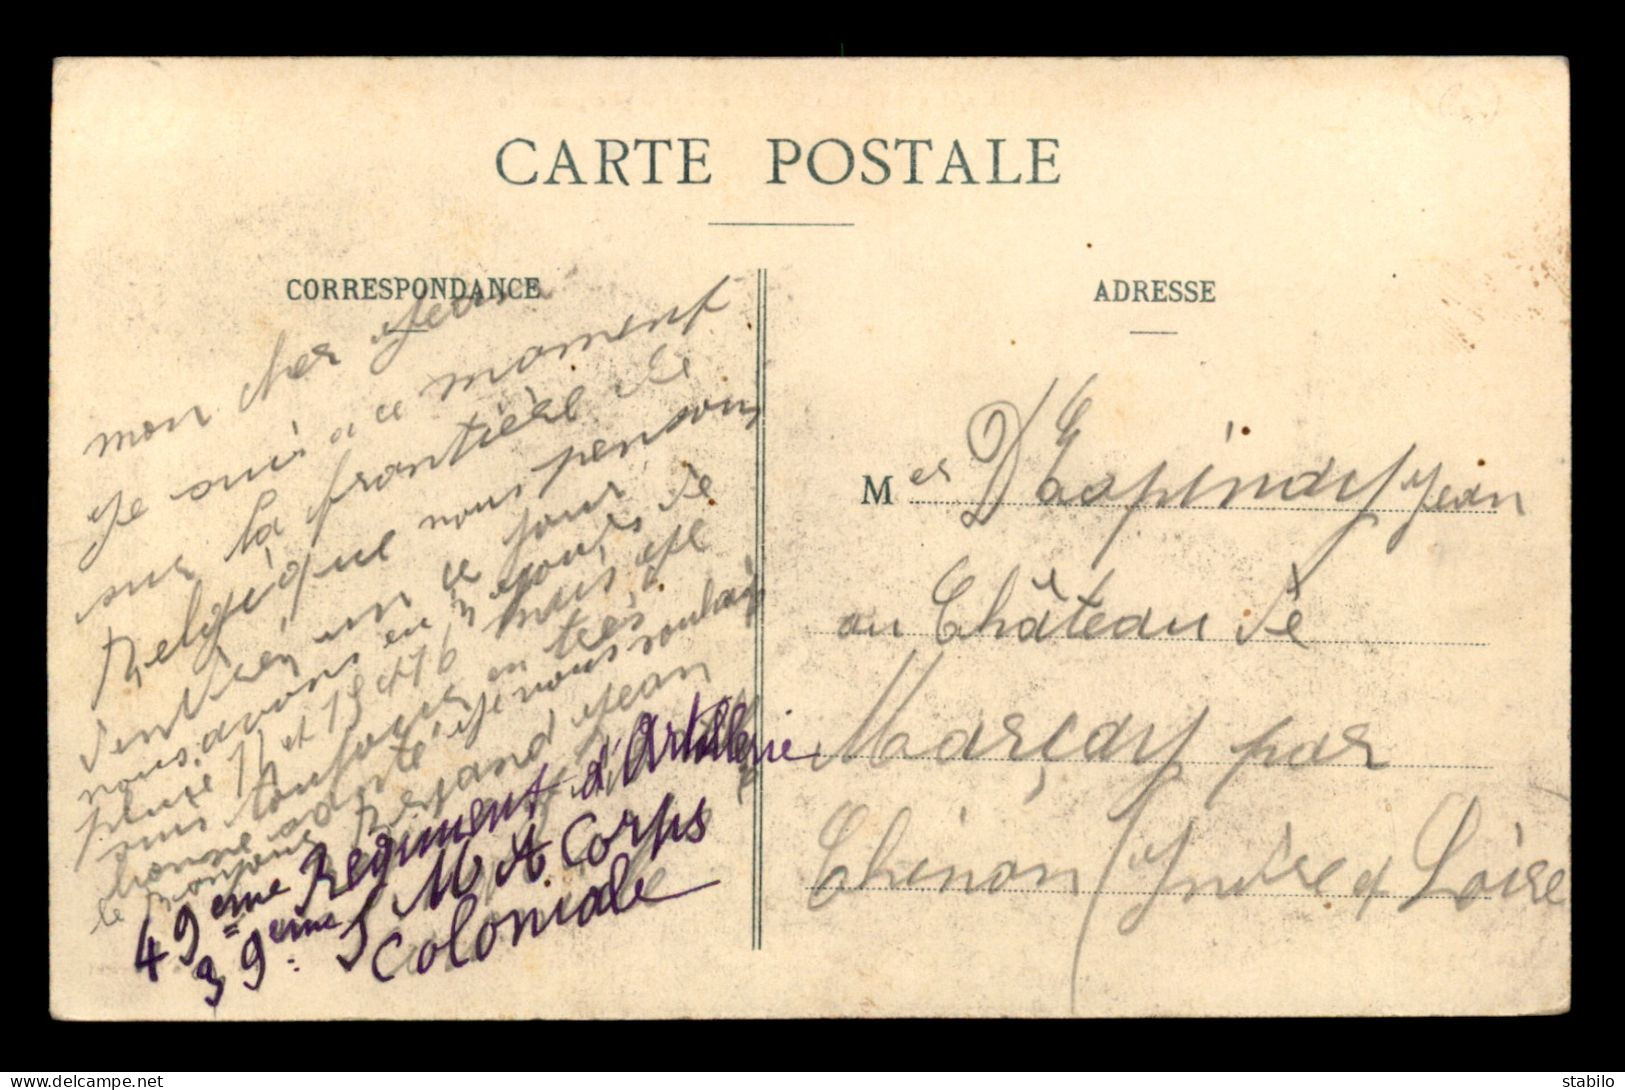 CARTE POSTALE
CORRESPONDANCE
mon cher Jean
Je suis a ce moment
sur la frontière de
Belgique nous pensons
un ce jour
nous avons eu jours de
pluie et 15 et 16 mais je
suis toujours en très
bonne santé je vous souhais
le bonjour Jean
49eme Regiment d'Artillerie
39eme S M A Corps
Coloniale
ADRESSE
Mer D'Espinay Jean
au Château de
Marçay par
Chinon (Indre et Loire
stabilo